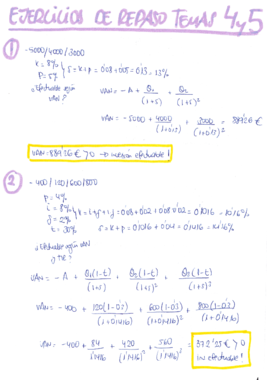 EJERCICIOS DE REPASO TEMAS 4y5
1
-5000/4000/3000
k = 8%
p = 5%
s = k+p = 0'08+0'05 = 0'13 = 13%
¿Efectuable según VAN?
VAN = -A + Q₁/(1+s) + Q₂/(1+s)²
VAN = -5000 + 4000/(1+0'13) + 3000/(1+0'13)² = 889'26 €
VAN = 889'26 € > 0 → inversión efectuable!
2
-400/120/600/800
p = 4%
i = 8%
g = 2%
t = 30%
k = i+g+i·g = 0'08+0'02+0'08·0'02 = 0'1016 = 10'16%
s = k+p = 0'1016+0'04 = 0'1416 = 14'16%
¿Efectuable según VAN y TIR?
VAN = -A + Q₁(1-t)/(1+s) + Q₂(1-t)/(1+s)² + Q₃(1-t)/(1+s)³
VAN = -400 + 120(1-0'3)/(1+0'1416) + 600(1-0'3)/(1+0'1416)² + 800(1-0'3)/(1+0'1416)³
VAN = -400 + 84/1'1416 + 420/(1'1416)² + 560/(1'1416)³ = 372'25 € > 0
inv efectuable!